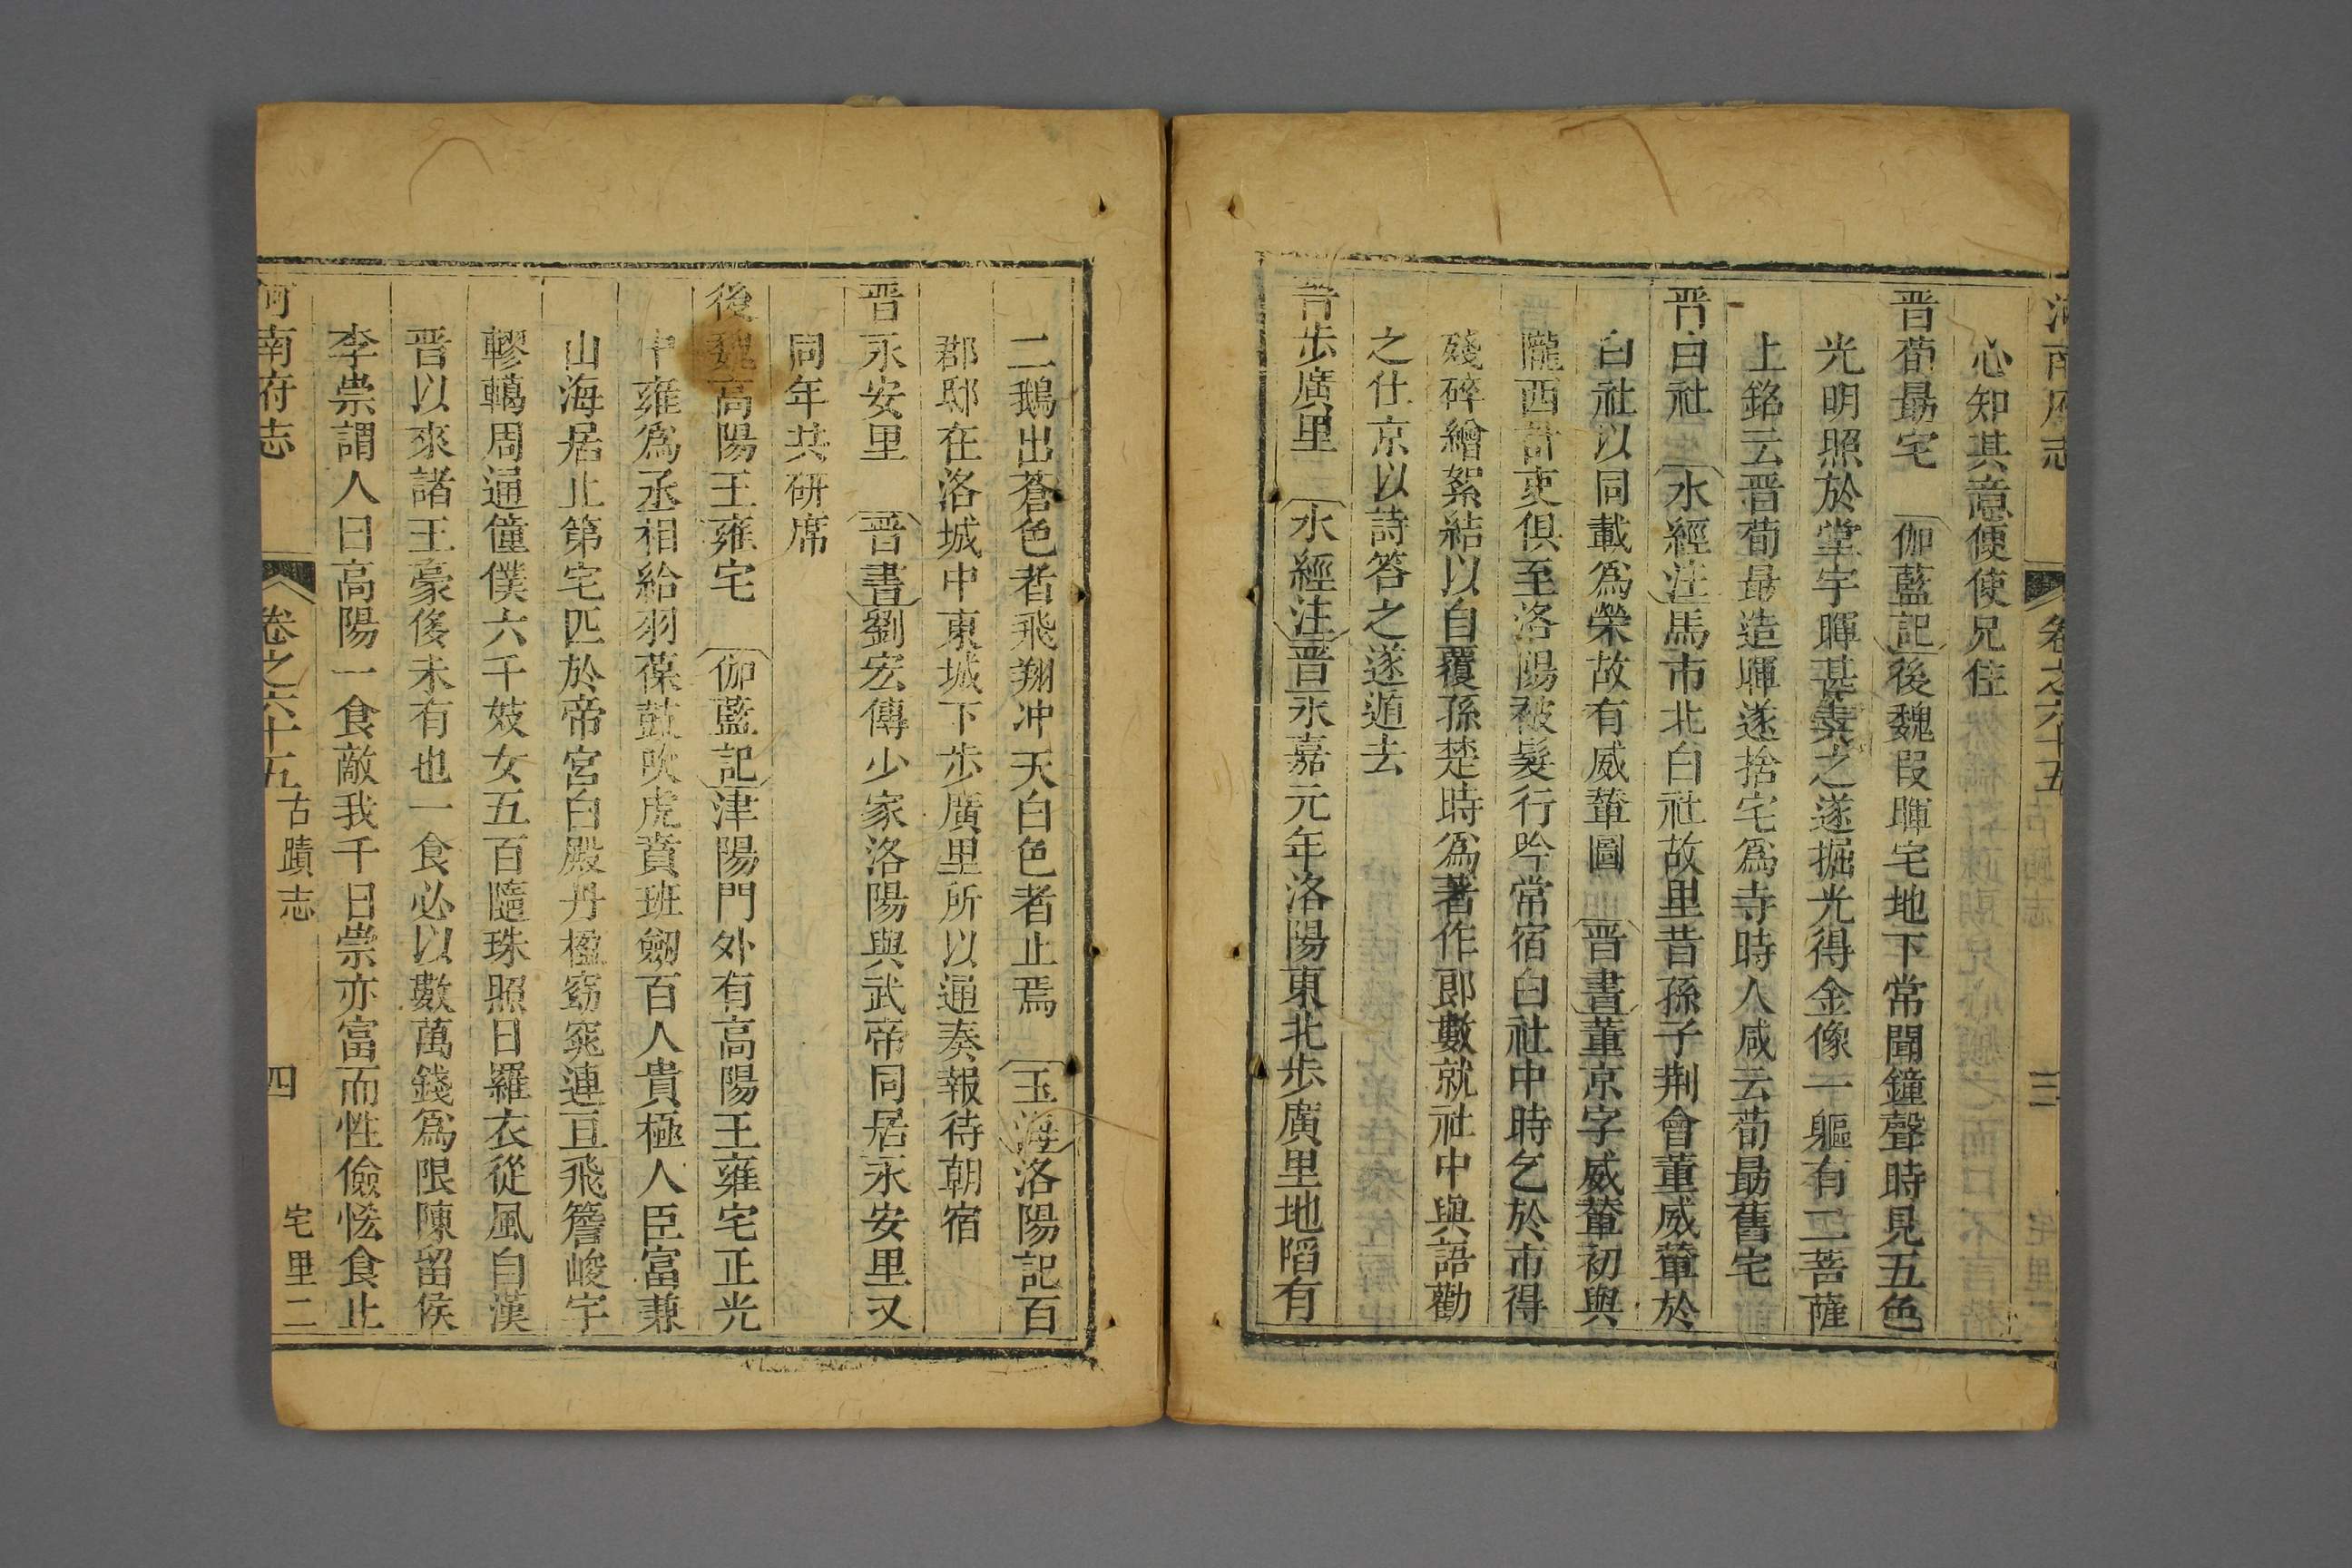 河南府志 卷之六十五 古蹟志 三 宅里二
心知其意便使兄住
晋荀勗宅 伽藍記後魏段暉宅地下常聞鐘聲時見五色
光明照於堂宇暉甚異之遂掘光得金像一軀有二菩薩
上銘云晋荀勗造暉遂捨宅爲寺時人咸云荀勗舊宅
晋白社 水經注馬市北白社故里昔孫子荆會董威輦於
白社以同載爲榮故有威輦圖 晋書董京字威輦初與
隴西計吏俱至洛陽被髮行吟常宿白社中時乞於市得
殘碎繒絮結以自覆孫楚時爲著作郎數就社中與語勸
之仕京以詩答之遂遁去
晋步廣里 水經注晋永嘉元年洛陽東北步廣里地陷有
二鵝出蒼色者飛翔冲天白色者止焉 玉海洛陽記百
郡邸在洛城中東城下步廣里所以通奏報待朝宿
晋永安里 晋書劉宏傳少家洛陽與武帝同居永安里又
同年共研席
後魏高陽王雍宅 伽藍記津陽門外有高陽王雍宅正光
中雍爲丞相給羽葆鼓吹虎賁班劒百人貴極人臣富兼
山海居止第宅匹於帝宮白殿丹楹窈窕連亘飛簷峻宇
轇轕周通僮僕六千妓女五百隨珠照日羅衣從風自漢
晋以來諸王豪侈未有也一食必以數萬錢爲限陳留侯
李崇謂人曰高陽一食敵我千日崇亦富而性儉恡食止
河南府志 卷之六十五 古蹟志 四 宅里二